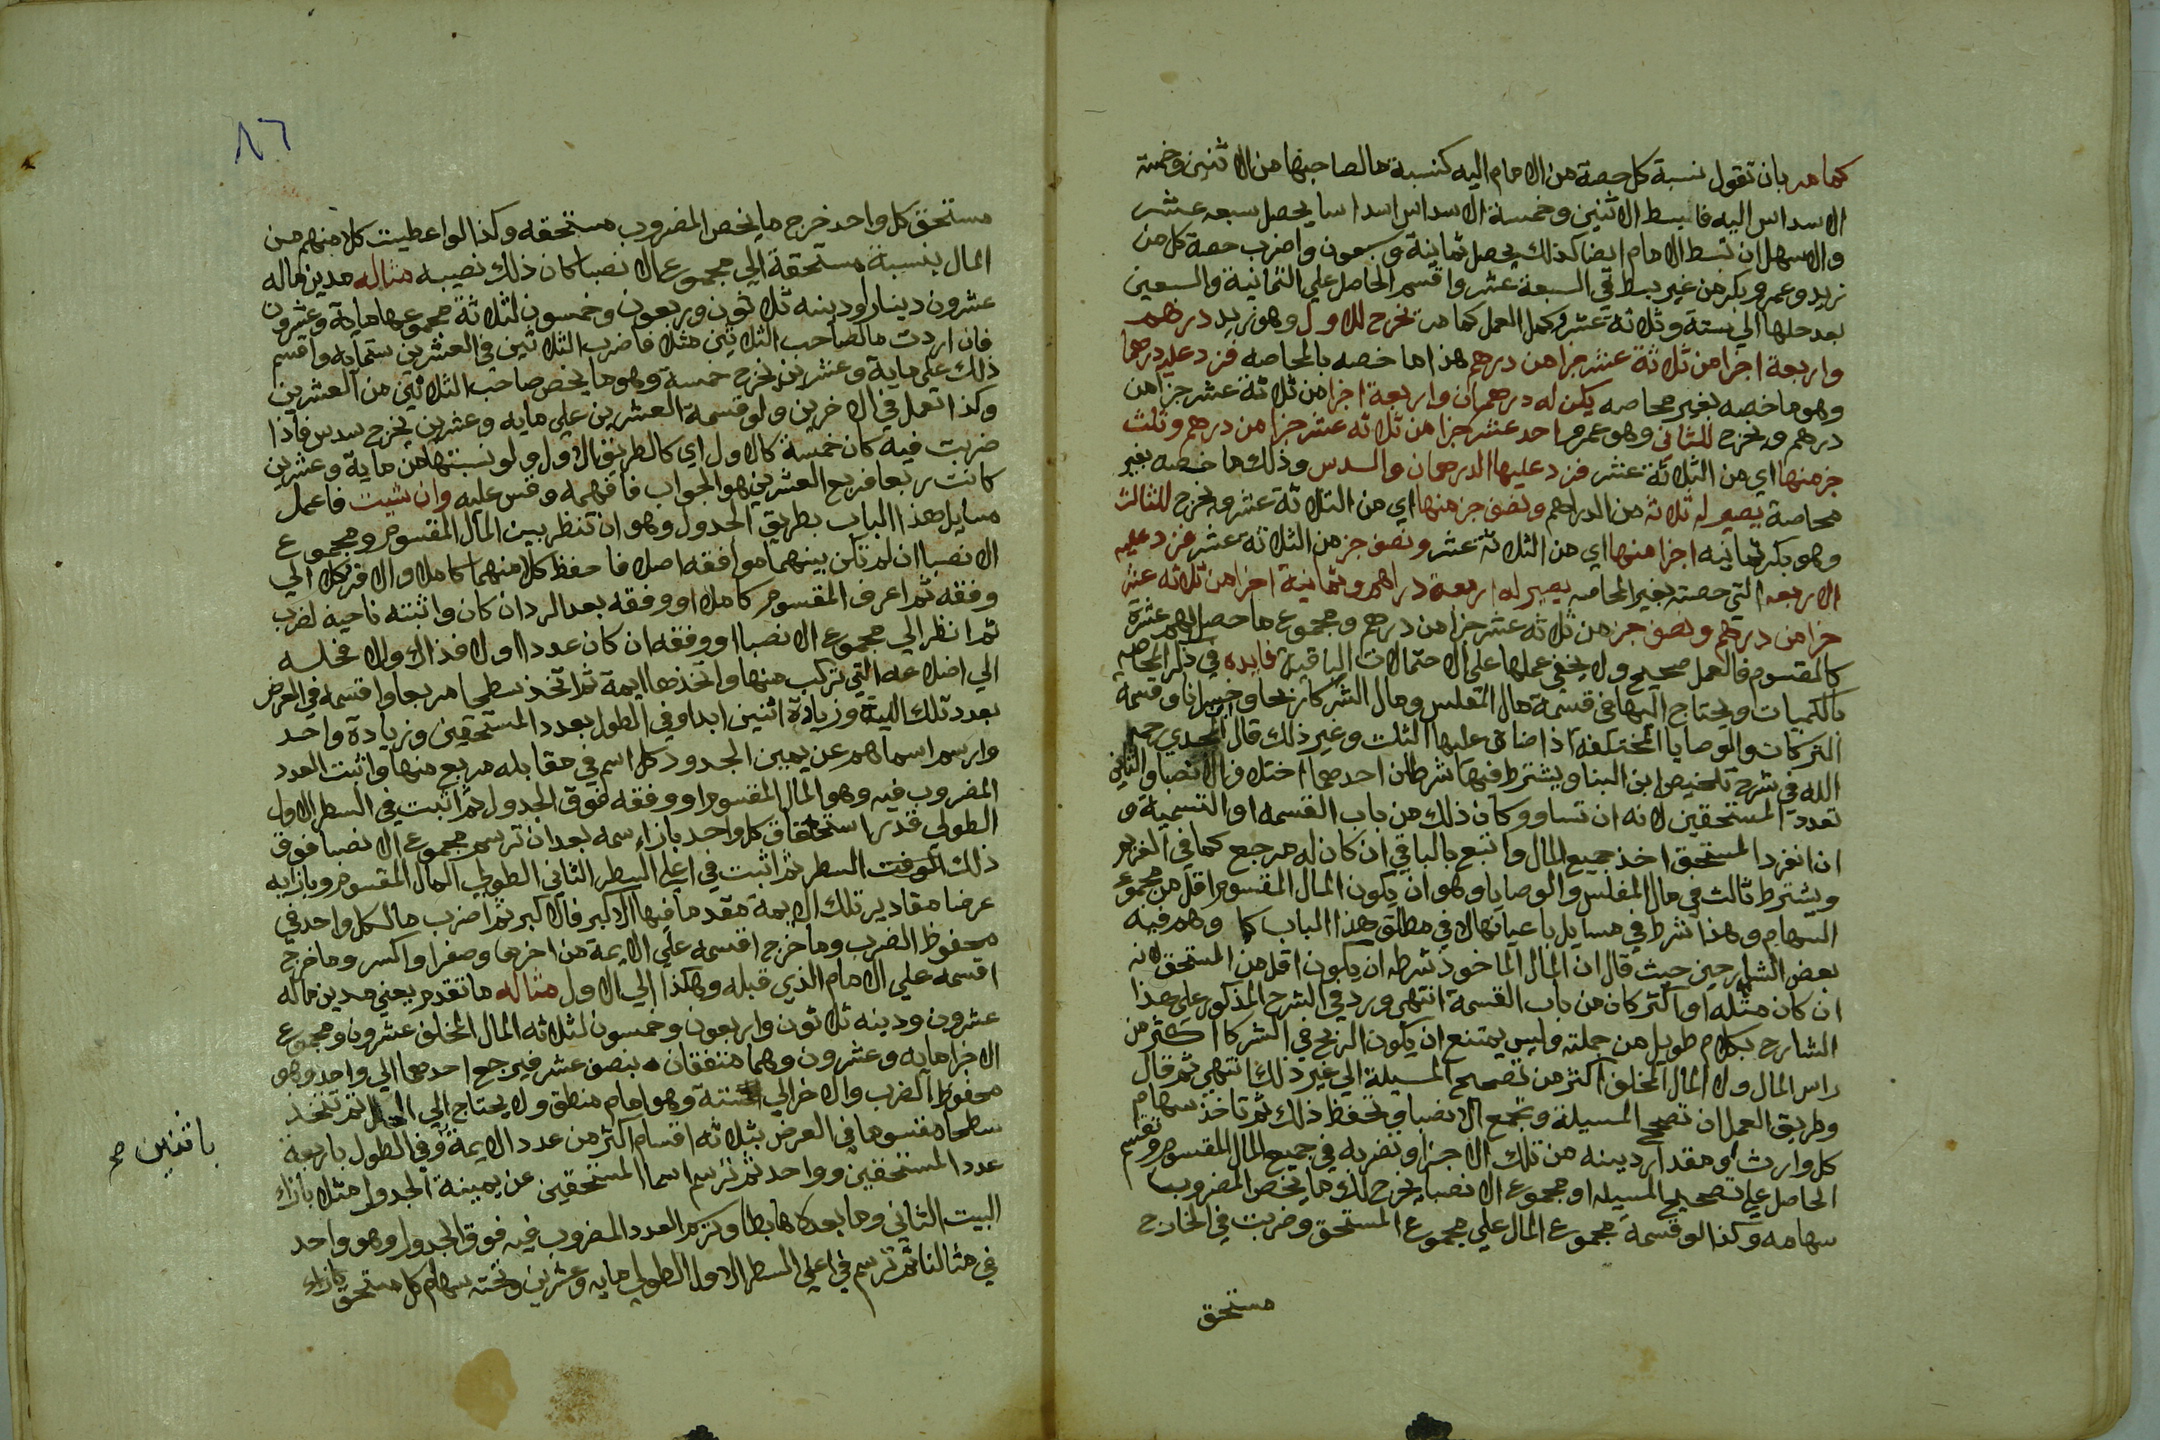 كما مر بان تقول نسبة كل حصة من الامام اليه كنسبة ما لصاحبها من الاثنين وخمسة
الاسداس اليه فابسط الاثنين وخمسة الاسداس اسداسا يحصل سبعه عشر
والاسهل ان تبسط الامام ايضا كذلك يحصل ثمانية وسبعون واضرب حصة كل من
زيد وعمر وبكر من غير بسط في السبعة عشر واقسم الحاصل علي الثمانية والسبعين
بعد حلها الي ستة وثلاثه عشر وكمل العمل كما مر تخرج للاول وهو زيد درهم
واربعة اجزا من ثلاثة عشر جزا من درهم هذا ما خصه بالمحاصه فزد عليه درهما
وهو ما خصه بغير محاصه يكن له درهمان واربعة اجزا من ثلاثة عشر جزا من
درهم ويخرج للثاني وهو عمرو احد عشر جزا من ثلاثه عشر جزا من درهم وثلث
جز منها اي من الثلاثة عشر فزد عليها الدرهمان والسدس وذلك ما خصه بغير
محاصة يصير له ثلاثة من الدراهم ونصف جز منها اي من الثلاثة عشر ويخرج للثالث
وهو بكر ثمانيه اجزا منها اي من الثلاثة عشر ونصف جز من الثلاثة عشر فزد عليه
الاربعه التي حصته بغير المحاصه يصير له اربعة دراهم وثمانية اجزا من ثلاثه عشر
جزا من درهم ونصف جز من ثلاثه عشر جزا من درهم ومجموع ما حصل لهم عشرة
كالمقسوم فالعمل صحيح ولا يخفي عملها علي الاحتمالات الباقية فايده في ذكر المحاصه
بالكميات ويحتاج اليها في قسمة مال المفلس ومال الشركا ربحا وخسرانا وقسمة
التركات والوصايا المختلفه اذا ضاق عليها الثلث وغير ذلك قال المجدي رحمه
الله في شرح تلخيص ابن البنا ويشترط فيها شرطان احدهما اختلاف الانصبا والثاني
تعدد المستحقين لانه ان تساوو كان ذلك من باب القسمه او التسمية و
ان انفرد المستحق اخذ جميع المال واتبع بالباقي ان كان له مرجع كما في الغريم
ويشترط ثالث في مال المفلس والوصايا وهو ان يكون المال المقسوم اقل من مجموع
السهام وهذا شرط في مسايل باعيانها لا في مطلق هذا الباب كما وهم فيه
بعض الشارحين حيث قال ان المال الماخوذ شرطه ان يكون اقل من المستحق لانه
ان كان مثله او اكثر كان من باب القسمة انتهي ورد في الشرح المذكور علي هذا
الشارح بكلام طويل من جملته وليس يمتنع ان يكون الربح في الشركا اكثر من
راس المال ولا المال المخلف اكثر من تصحيح المسيلة الي غير ذلك انتهي ثم قال
وطريق العمل ان تصحح المسيلة وتجمع الانصبا وتحفظ ذلك ثم تاخذ سهام
كل وارث او مقدار دينه من تلك الاجزا وتضربه في جميع المال المقسوم وتقسم
الحاصل علي تصحيح المسيله او مجموع الانصبا يخرج لك ما يخص المضروب
سهامه وكذا لو قسمة مجموع المال علي مجموع المستحق وضربت في الخارج
مستحق
٨٦
مستحق كل واحد خرج ما يخص المضروب مستحقه وكذا لو اعطيت كلا منهم من
المال بنسبة مستحقة الي مجموع الانصبا كان ذلك نصيبه مثاله مدين ماله
عشرون دينارا ودينه ثلاثون وربعون وخمسون لثلاثة مجموعها ماية وعشرون
فان اردت ما لصاحب الثلاثين مثلا فاضرب الثلاثين في العشرين ستمايه واقسم
ذلك علي ماية وعشرين يخرج خمسة وهو ما يخص صاحب الثلاثين من العشرين
وكذا تعمل في الاخرين ولو قسمة العشرين علي مايه وعشرين يخرج سدس فاذا
ضربت فيه كان خمسة كالاول اي كالطريق الاول ولو نسبتها من ماية وعشرين
كانت ربعا فربع العشرين هو الجواب فافهمه وقس عليه وان شيت فاعمل
مسايل هذا الباب بطريق الجدول وهو ان تنظر بين المال المقسوم ومجموع
الانصبا ان لم تكن بينهما موافقه اصلا فاحفظ كلا منهما كاملا والا فرد كلا الي
وفقه ثم اعرف المقسوم كاملا او وفقه بعد الرد ان كان واثبته ناحية لضرب
ثم انظر الي مجموع الانصبا او وفقه ان كان عددا اولا فذاك والا فحله
الي اضلاعه التي تركب منها واتخذها ايمة ثم اتخذ سطحا مربعا واقسمه في العرض
بعدد تلك اليمة وزيادة اثنين ابدا وفي الطول بعدد المستحقين وزيادة واحد
وارسم اسماهم عن يمين الجدود كل اسم في مقابله مربع منها واثبت العدد
المضروب فيه وهو المال المقسوم او وفقه فوق الجدول ثم اثبت في السطر الاول
الطولي قدر استحقاق كل واحد بازاء سمه بعد ان ترسم مجموع الانصبا فوق
ذلك السطر ثم اثبت في اعلي السطر الثاني الطولي المال المقسوم وبازايه
عرضا مقادير تلك الايمة مقدما فيها الاكبر فالاكبر ثم اضرب ما لكل واحد في
محفوظ الضرب وما خرج اقسمه علي الايمة من اخرها وصفرا واكسر وما خرج
اقسمه علي الامام الذي قبله وهكذا الي الاول مثاله ما تقدم يعني مدين ماله
عشرون ودينه ثلاثون واربعون وخمسون لثلاثه المال المخلف عشرون ومجموع
الاجزا مايه وعشرون وهما متفقان بنصف عشر فيرجع احدهما الي واحد وهو
محفوظ الضرب والاخر الي ستة وهو امام منطق ولا يحتاج الي الحل ثم تتخذ
سطحا مقسوما في العرض بثلاثه اقسام اكثر من عدد الايمة وفي الطول باربعة
باثنين صح
عدد المستحقين وواحد ثم ترسم اسما المستحقين عن يمينة الجدول مثلا بازاء
البيت الثاني وما بعده هابطا وترسم العدد المضروب فيه فوق الجدول وهو واحد
في مثالنا ثم ترسم في اعلي السطر الاول الطولي مايه وعشرين وتحته سهام كل مستحق بازاء